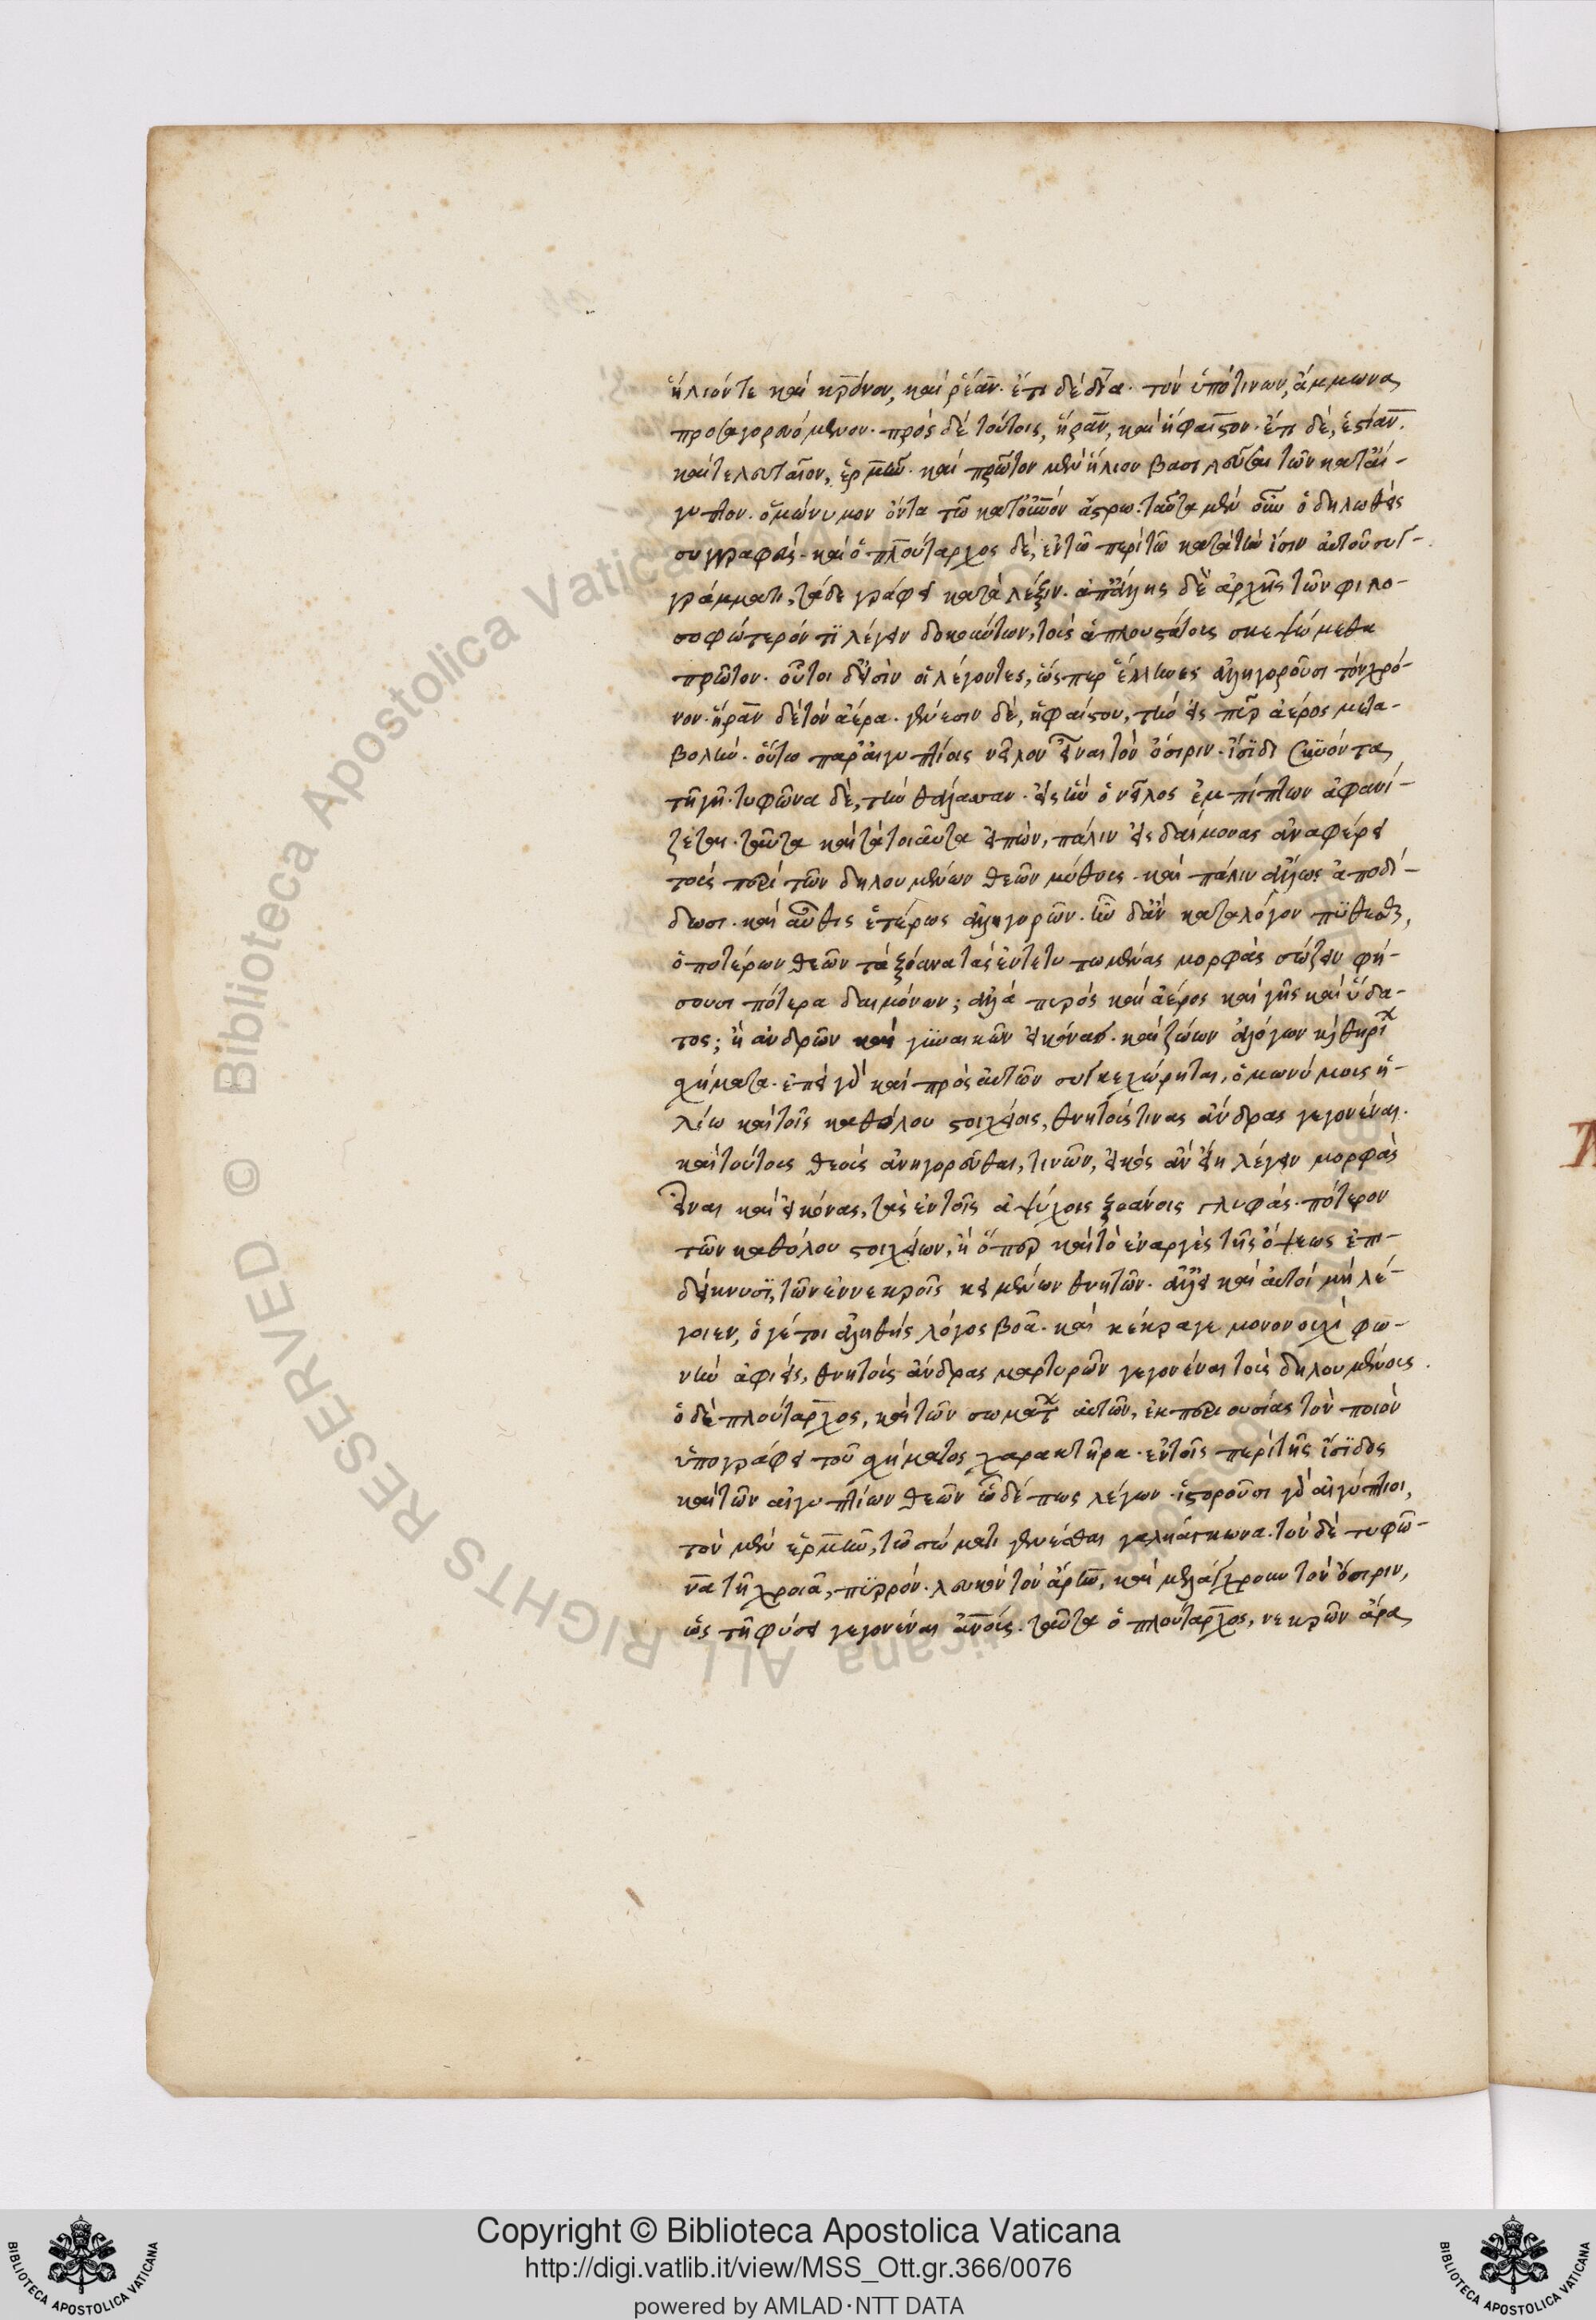 ἥλιόν τε καὶ κρόνον, καὶ ῥέαν. ἔτι δὲ δία. τὸν ὑπό τινων, ἄμμωνα
προσαγορευόμενον. πρὸς δὲ τούτοις, ἥραν, καὶ ἥφαιστον. ἔτι δὲ, ἑστίαν.
καὶ τελευταῖον, ἑρμῆν. καὶ πρῶτον μὲν ἥλιον βασιλεῦσαι τῶν κατ' αἴ-
γυπτον. ὁμώνυμον ὄντα τῶ κατ' οὐνὸν ἄστρω. ταῦτα μὲν οὖν ὁ δηλωθεὶς
συγγραφεύς. καὶ ὁ πλούταρχος δὲ, ἐν τῶ περὶ τῶ κατὰ τὴν ἶσιν αὐτοῦ συγ-
γράμματι, τάδε γράφει κατὰ λέξιν. ἀπ' ἄλλης δὲ ἀρχῆς τῶν φιλο-
σοφώτερόν τι λέγειν δοκούντων, τοὺς ἁπλουστάτους σκεψώμεθα
πρῶτον. οὗτοι δ' εἰσὶν οἱ λέγοντες, ὥσπερ ἕλληνες ἀλληγοροῦσι τὸν χρό-
νον. ἥραν δὲ τὸν ἀέρα. γένεσιν δὲ, ἡφαίστου, τὴν εἰς πῦρ ἀέρος μετα-
βολήν. οὕτω παρ' αἰγυπτίοις νεῖλον εἶναι τὸν ὄσιριν. ἴσιδι συνόντα
τῆ γῆ. τυφῶνα δὲ, τὴν θάλασσαν. εἰς ἣν ὁ νεῖλος ἐμπίπτων ἀφανί-
ζεται. ταῦτα καὶ τὰ τοιαῦτα εἰπὼν, πάλιν εἰς δαίμονας ἀναφέρει
τοὺς περὶ τῶν δηλουμένων θεῶν μύθους. καὶ πάλιν ἄλλως ἀποδί-
δωσι. καὶ αὖθις ἑτέρως ἀλληγορῶν. ὧν δ' ἂν καταλόγον πύθεσθαι,
ὁποτέρων θεῶν τὰ ξόανα τὰς ἐντετυπωμένας μορφὰς σώζειν φή-
σουσι πότερα δαιμόνων; ἀλλὰ πυρὸς καὶ ἀέρος καὶ γῆς καὶ ὕδα-
τος; ἢ ἀνδρῶν καὶ γυναικῶν εἰκόνας. καὶ ζώων ἀλόγων κ θηρί
χήματα. ἐπεὶ γὰρ καὶ πρὸς αὐτῶν συγκεχώρηται, ὁμωνύμους ἡ-
λίω καὶ τοῖς καθόλου στοιχείοις, θνητούς τινας ἄνδρας γεγονέναι.
καὶ τούτους θεοὺς ἀνηγορεῦσθαι, τινῶν, εἰκὸς ἂν εἴη λέγειν μορφὰς
εἶναι καὶ εἰκόνας, τὰς ἐν τοῖς ἀψύχοις ξοάνοις γλυφάς. πότερον
τῶν καθόλου στοιχείων, ἢ ὅπερ καὶ τὸ ἐναργὲς τῆς ὄψεως ἐπι-
δείκνυσι, τῶν ἐν νεκροῖς κειμένων θνητῶν. ἀλλ' εἰ καὶ αὐτοὶ μὴ λέ-
γοιεν, ὅ γέ τοι ἀληθὴς λόγος βοᾶ. καὶ κέκραγε μονονουχὶ φω-
νὴν ἀφιεὶς, θνητοὺς ἄνδρας μαρτυρῶν γεγονέναι τοὺς δηλουμένους.
ὁ δὲ πλούταρχος, καὶ τῶν σωμάτ αὐτῶν, ἐκ περιουσίας τὸν ποιὸν
ὑπογράφει τοῦ χήματος χαρακτῆρα. ἐν τοῖς περὶ τῆς ἴσιδος
καὶ τῶν αἰγυπτίων θεῶν ὧδέ πως λέγων. ἱστοροῦσι γὰρ αἰγύπτιοι,
τὸν μὲν ἑρμῆν, τῶ σώματι γενέσθαι γαλιάγκωνα. τὸν δὲ τυφῶ-
να τῆ χροιᾶ, πυρρόν. λευκὸν τὸν ἄρην, καὶ μελάγχρουν τὸν ὄσιριν,
ὡς τῆ φύσει γεγονέναι ἀνοὺς. ταῦτα ὁ πλούταρχος, νεκρῶν ἄρα
Copyright © Biblioteca Apostolica Vaticana
http://digi.vatlib.it/view/MSS_Ott.gr.366/0076
powered by AMLAD·NTT DATA